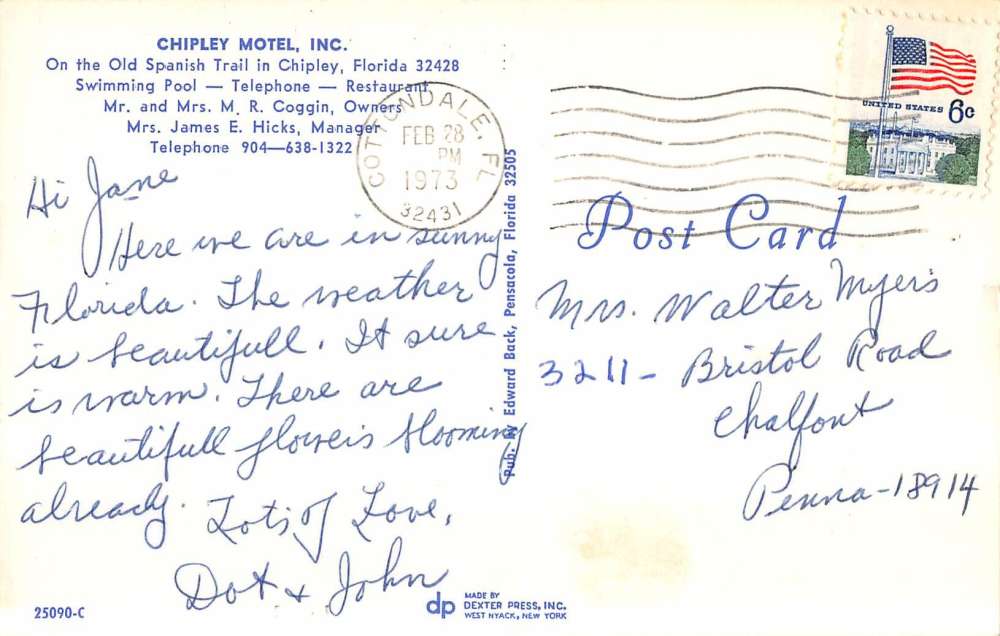 CHIPLEY MOTEL, INC.
On the Old Spanish Trail in Chipley, Florida 32428
Swimming Pool — Telephone — Restaurant
Mr. and Mrs. M. R. Coggin, Owners
Mrs. James E. Hicks, Manager
Telephone 904—638-1322
COTTONDALE, FL
FEB 28
PM
1973
32431
UNITED STATES 6c
Hi Jane
Here we are in sunny
Florida. The weather
is beautifull. It sure
is warm. There are
beautifull flowers blooming
already.
Lots of Love,
Dot & John
25090-C
Pub. by Edward Back, Pensacola, Florida 32505
Post Card
Mrs. Walter Myers
3211- Bristol Road
Chalfont
Penna-18914
dp
MADE BY
DEXTER PRESS, INC.
WEST NYACK, NEW YORK